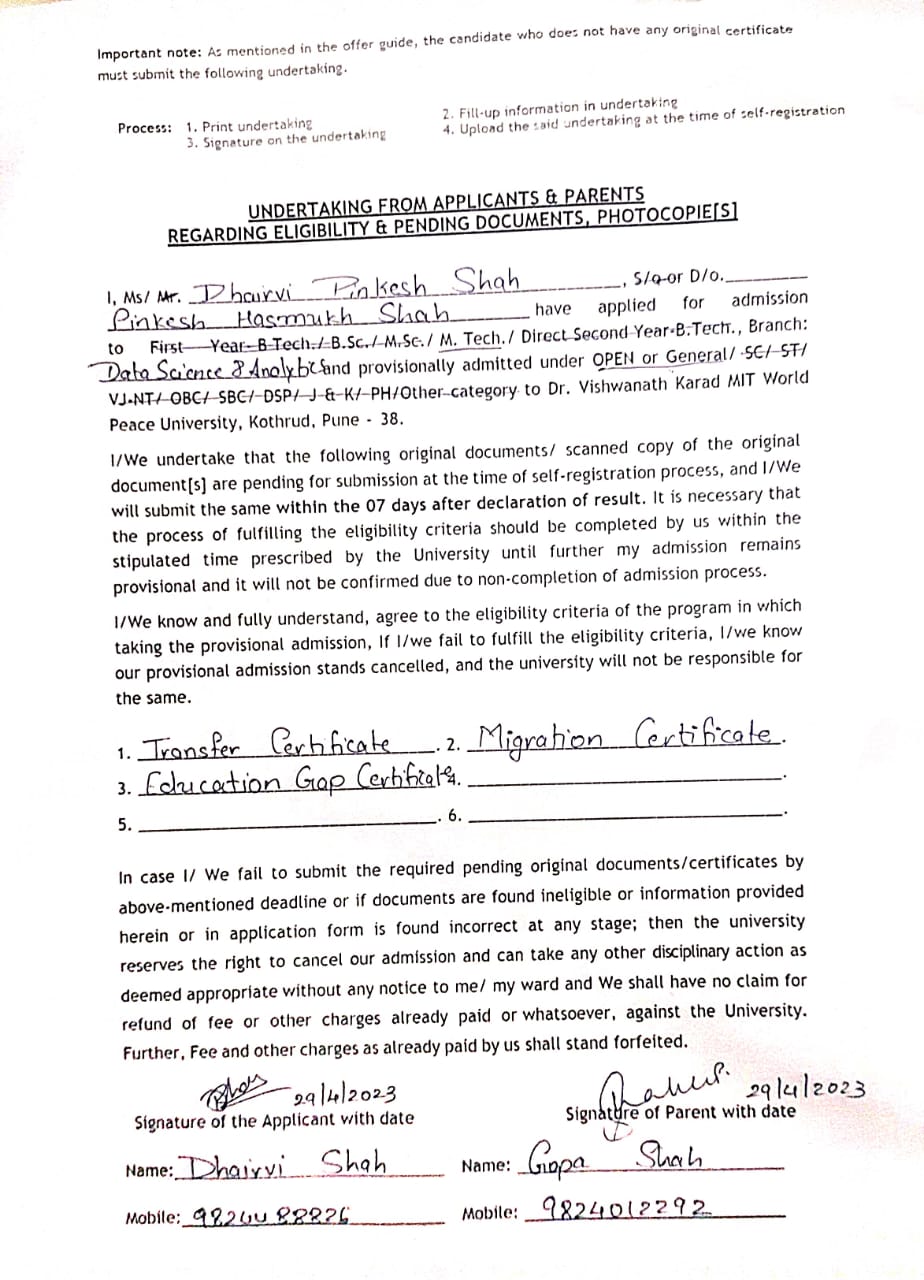 Important note: As mentioned in the offer guide, the candidate who does not have any original certificate
must submit the following undertaking.
Process: 1. Print undertaking 2. Fill-up information in undertaking
3. Signature on the undertaking 4. Upload the said undertaking at the time of self-registration
UNDERTAKING FROM APPLICANTS & PARENTS
REGARDING ELIGIBILITY & PENDING DOCUMENTS, PHOTOCOPIE[S]
I, Ms/ Mr. Dhairvi Pinkesh Shah, S/o or D/o.
Pinkesh Hasmukh Shah have applied for admission
to First Year B-Tech./ B.Sc./ M.Sc./ M. Tech./ Direct Second Year-B.Tech., Branch:
Data Science & Analytics and provisionally admitted under OPEN or General/ SC/ ST/
VJ-NT/ OBC/ SBC/ DSP/ J & K/ PH/Other category to Dr. Vishwanath Karad MIT World
Peace University, Kothrud, Pune - 38.
I/We undertake that the following original documents/ scanned copy of the original
document[s] are pending for submission at the time of self-registration process, and I/We
will submit the same within the 07 days after declaration of result. It is necessary that
the process of fulfilling the eligibility criteria should be completed by us within the
stipulated time prescribed by the University until further my admission remains
provisional and it will not be confirmed due to non-completion of admission process.
I/We know and fully understand, agree to the eligibility criteria of the program in which
taking the provisional admission, If I/we fail to fulfill the eligibility criteria, I/we know
our provisional admission stands cancelled, and the university will not be responsible for
the same.
1. Transfer Certificate. 2. Migration Certificate.
3. Education Gap Certificate 4. .
5. . 6. .
In case I/ We fail to submit the required pending original documents/certificates by
above-mentioned deadline or if documents are found ineligible or information provided
herein or in application form is found incorrect at any stage; then the university
reserves the right to cancel our admission and can take any other disciplinary action as
deemed appropriate without any notice to me/ my ward and We shall have no claim for
refund of fee or other charges already paid or whatsoever, against the University.
Further, Fee and other charges as already paid by us shall stand forfeited.
29/4/2023 29/4/2023
Signature of the Applicant with date Signature of Parent with date
Name: Dhairvi Shah Name: Gopa Shah
Mobile: 9824488826 Mobile: 9824012292